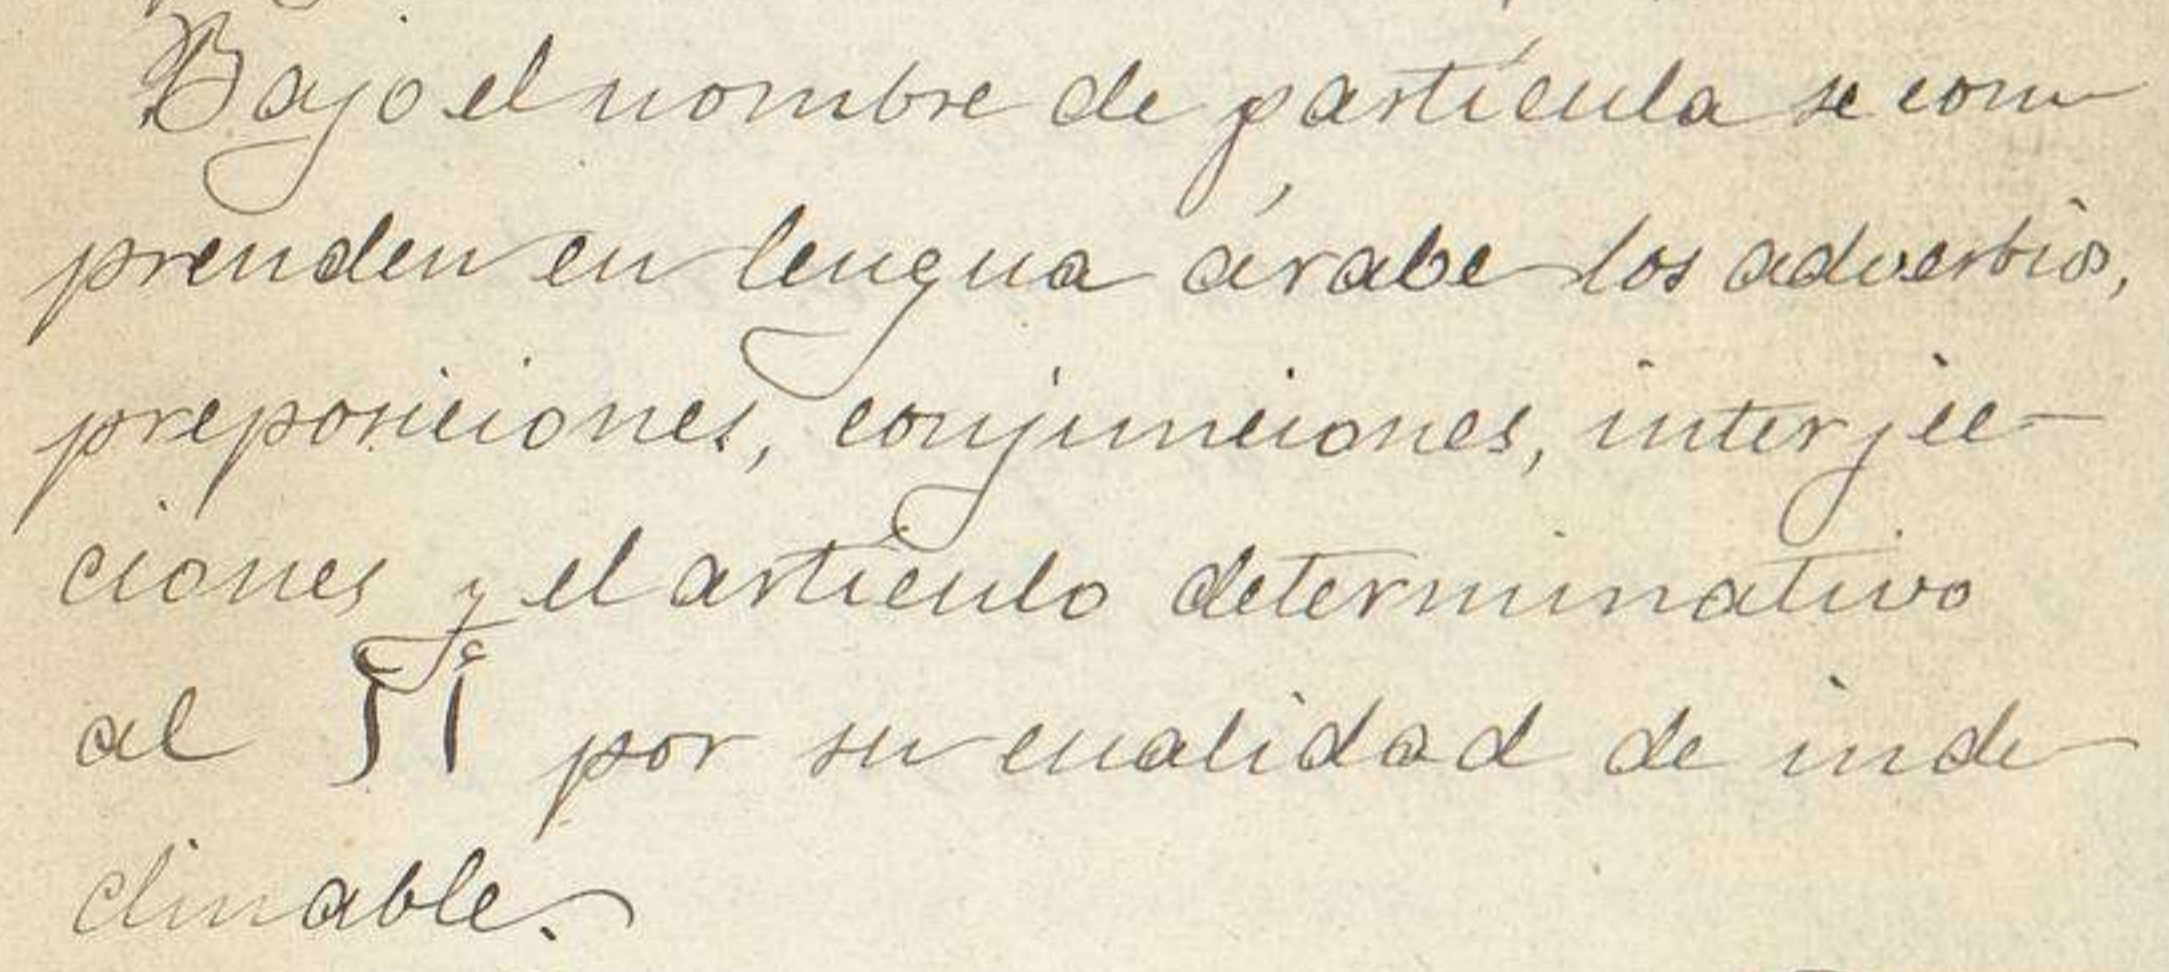 Bajo el nombre de partícula se com
prenden en lengua árabe los adverbios,
preposiciones, conjunciones, interjec-
ciones y el artículo determinativo
al أل por su cualidad de inde
clinable.